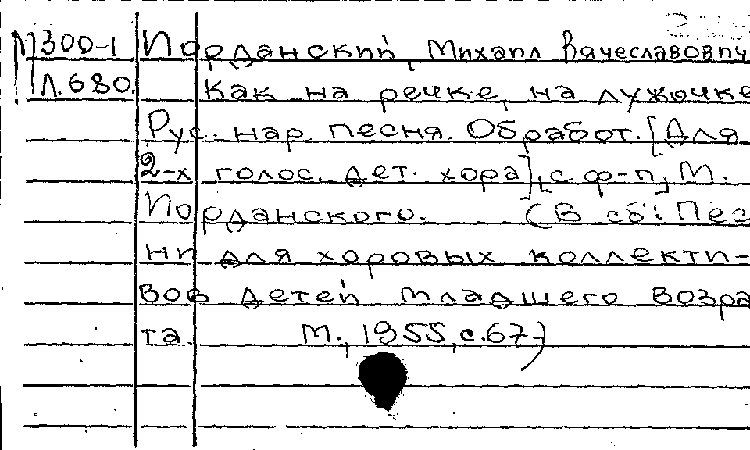 М300-1 Иорданский, Михаил Вячеславович
Л.680. Как на речке, на лужочке
Рус. нар. песня. Обработ. [Для
2-х голос. дет. хора], с ф-п, М.
Иорданского. (В сб: Пес
ни для хоровых коллекти-
вов детей младшего возра
та. М., 1955, с.67)